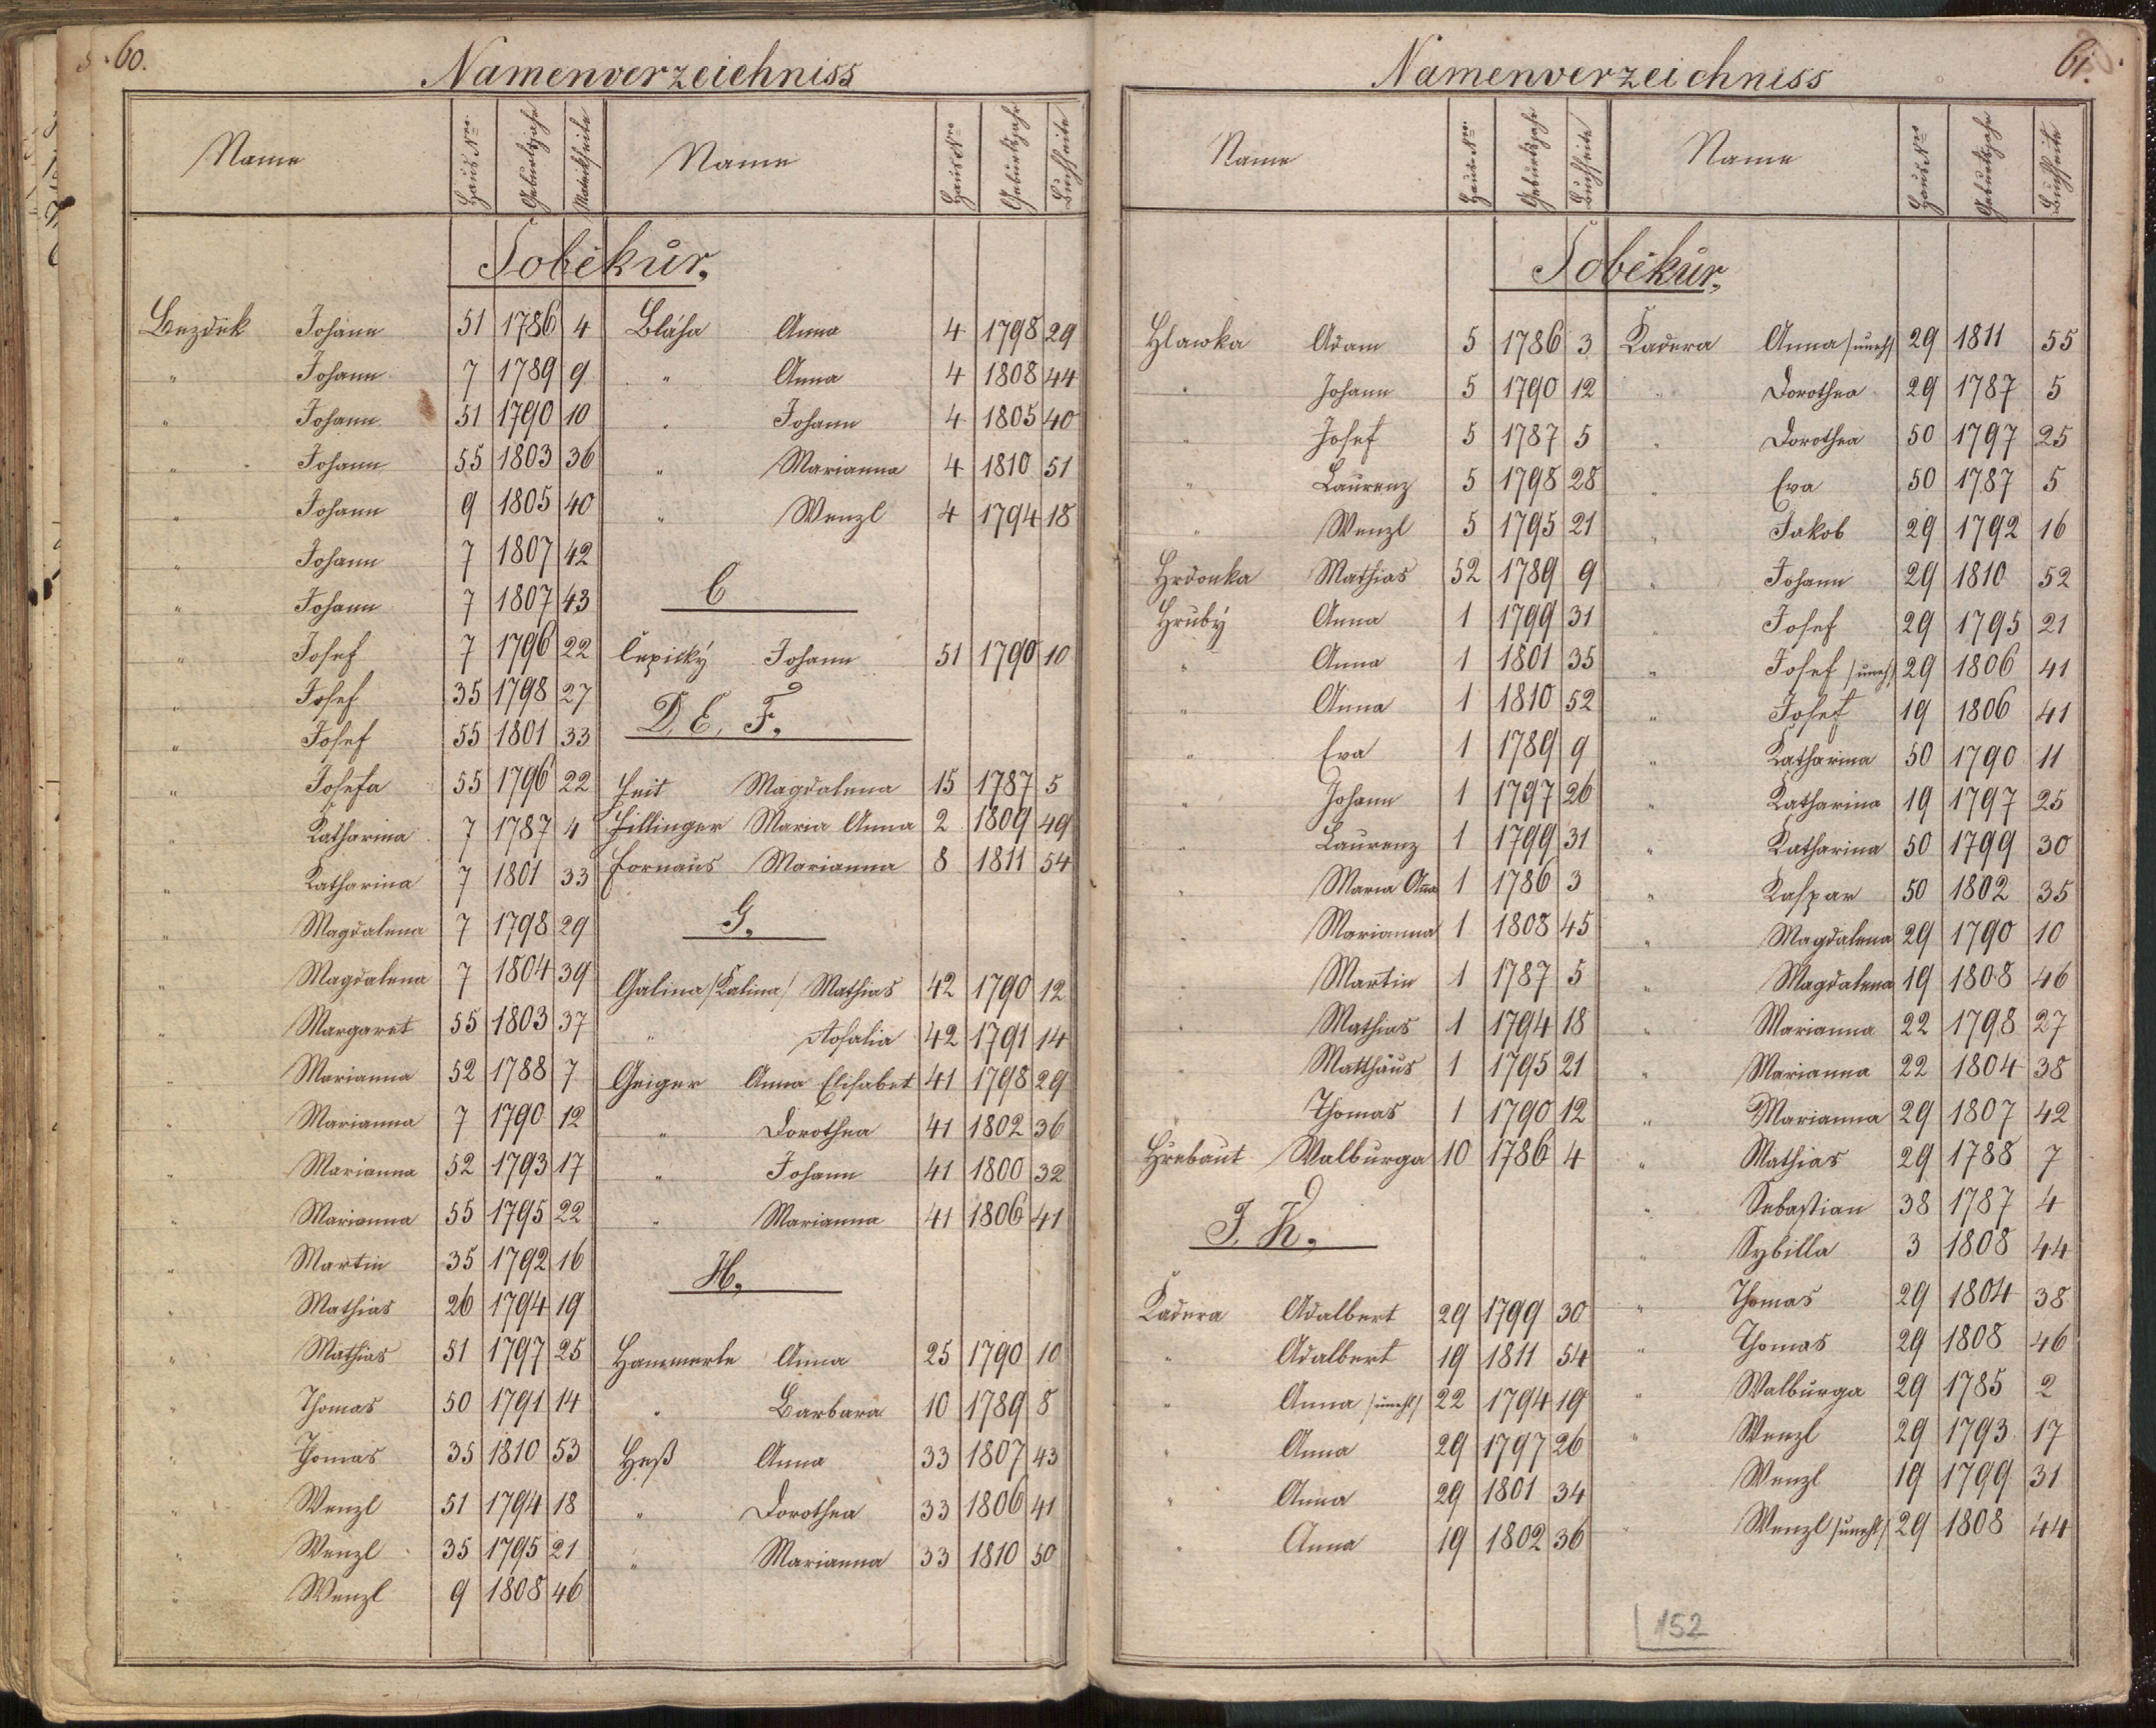 60.
Namenverzeichniss
Name Haus Nro. Geburtsjahr Matrikseite Name Haus Nro Geburtsjahr Buchseite
Sobĕkur.
Bezdĕk Johann 51 1786 4
" Johann 7 1789 9
" Johann 51 1790 10
" Johann 55 1803 36
" Johann 9 1805 40
" Johann 7 1807 42
" Johann 7 1807 43
" Josef 7 1796 22
" Josef 35 1798 27
" Josef 55 1801 33
" Josefa 55 1796 22
" Katharina 7 1787 4
" Katharina 7 1801 33
" Magdalena 7 1798 29
" Magdalena 7 1804 39
" Margaret 55 1803 37
" Marianna 52 1788 7
" Marianna 7 1790 12
" Marianna 52 1793 17
" Marianna 55 1795 22
" Martin 35 1792 16
" Mathias 26 1794 19
" Mathias 51 1797 25
" Thomas 50 1791 14
" Thomas 35 1810 53
" Wenzl 51 1794 18
" Wenzl 35 1795 21
" Wenzl 9 1808 46
Bláha Anna 4 1798 29
" Anna 4 1808 44
" Johann 4 1805 40
" Marianna 4 1810 51
" Wenzl 4 1794 18
C
Čepický Johann 51 1790 10
D, E, F,
Feit Magdalena 15 1787 5
Fillinger Maria Anna 2 1809 49
Fornaus Marianna 8 1811 54
G,
Galina /Kalina/ Mathias 42 1790 12
" Rosalia 42 1791 14
Geiger Anna Elisabet 41 1798 29
" Dorothea 41 1802 36
" Johann 41 1800 32
" Marianna 41 1806 41
H,
Hammerle Anna 25 1790 10
" Barbara 10 1789 8
Heß Anna 33 1807 43
" Dorothea 33 1806 41
" Marianna 33 1810 50
61.
Namenverzeichniss
Name Haus Nro. Geburtsjahr Buchseite Name Haus Nro Geburtsjahr Buchseite
Sobĕkur.
Hlawka Adam 5 1786 3
" Johann 5 1790 12
" Josef 5 1787 5
" Laurenz 5 1798 28
" Wenzl 5 1795 21
Hrdonka Mathias 52 1789 9
Hrubý Anna 1 1799 31
" Anna 1 1801 35
" Anna 1 1810 52
" Eva 1 1789 9
" Johann 1 1797 26
" Laurenz 1 1799 31
" Maria Anna 1 1786 3
" Marianna 1 1808 45
" Martin 1 1787 5
" Mathias 1 1794 18
" Matthäus 1 1795 21
" Thomas 1 1790 12
Hřebaut Walburga 10 1786 4
J, K,
Kadera Adalbert 29 1799 30
" Adalbert 19 1811 54
" Anna /unehl/ 22 1794 19
" Anna 29 1797 26
" Anna 29 1801 34
" Anna 19 1802 36
Kadera Anna /unehl/ 29 1811 55
" Dorothea 29 1787 5
" Dorothea 50 1797 25
" Eva 50 1787 5
" Jakob 29 1792 16
" Johann 29 1810 52
" Josef 29 1795 21
" Josef /unehl/ 29 1806 41
" Josef 19 1806 41
" Katharina 50 1790 11
" Katharina 19 1797 25
" Katharina 50 1799 30
" Kaspar 50 1802 35
" Magdalena 29 1790 10
" Magdalena 19 1808 46
" Marianna 22 1798 27
" Marianna 22 1804 38
" Marianna 29 1807 42
" Mathias 29 1788 7
" Sebastian 38 1787 4
" Sybilla 3 1808 44
" Thomas 29 1804 38
" Thomas 29 1808 46
" Walburga 29 1785 2
" Wenzl 29 1793 17
Wenzl 19 1799 31
" Wenzl /unehl/ 29 1808 44
152